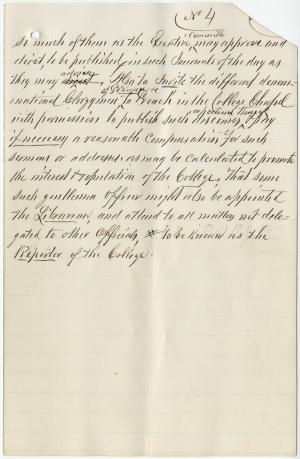 No 4
Committe
so much of them as the Ex may approve and
direct to be published, in such Journals of the day as
advise
they may direct, Also to Invite the different denomi-
of Waynesboro
national Clergymen to Preach in the College Chapel
or portions thereof
with permission to publish such discourses, & Pay
if necessary a reasonable compensation for such
sermons or addresses, as may be calculated to promote
the interest & reputation of the College, that some
such gentleman Officer might also be appointed
the Librarian, and attend to all matters not dele-
gated to other Officials, to be known as the
Reporter of the College.